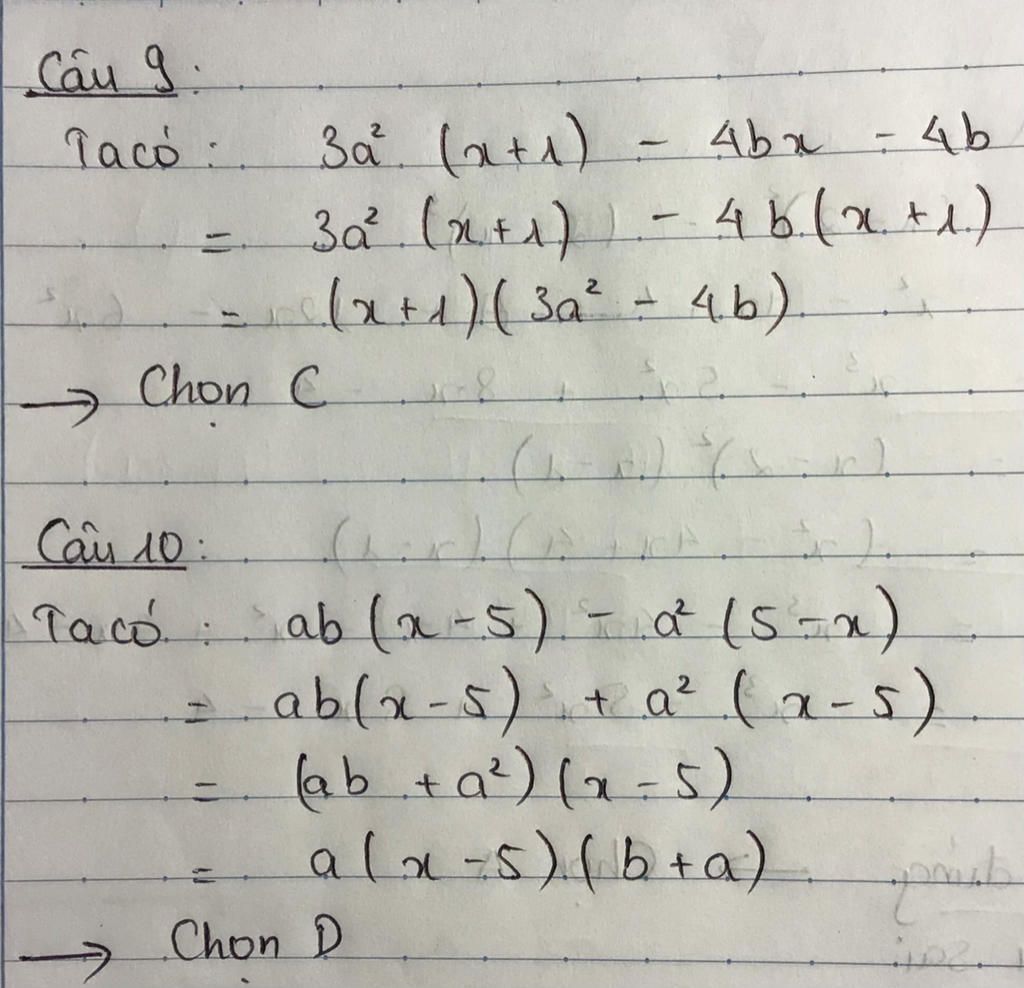 Câu 9:
Ta có: 3a² (x+1) - 4bx - 4b
= 3a² (x+1) - 4b(x+1)
= (x+1)(3a² - 4b)
→ Chọn C
Câu 10:
Ta có: ab(x-5) - a²(5-x)
= ab(x-5) + a² (x-5)
= (ab + a²)(x-5)
= a(x-5)(b+a)
→ Chọn D